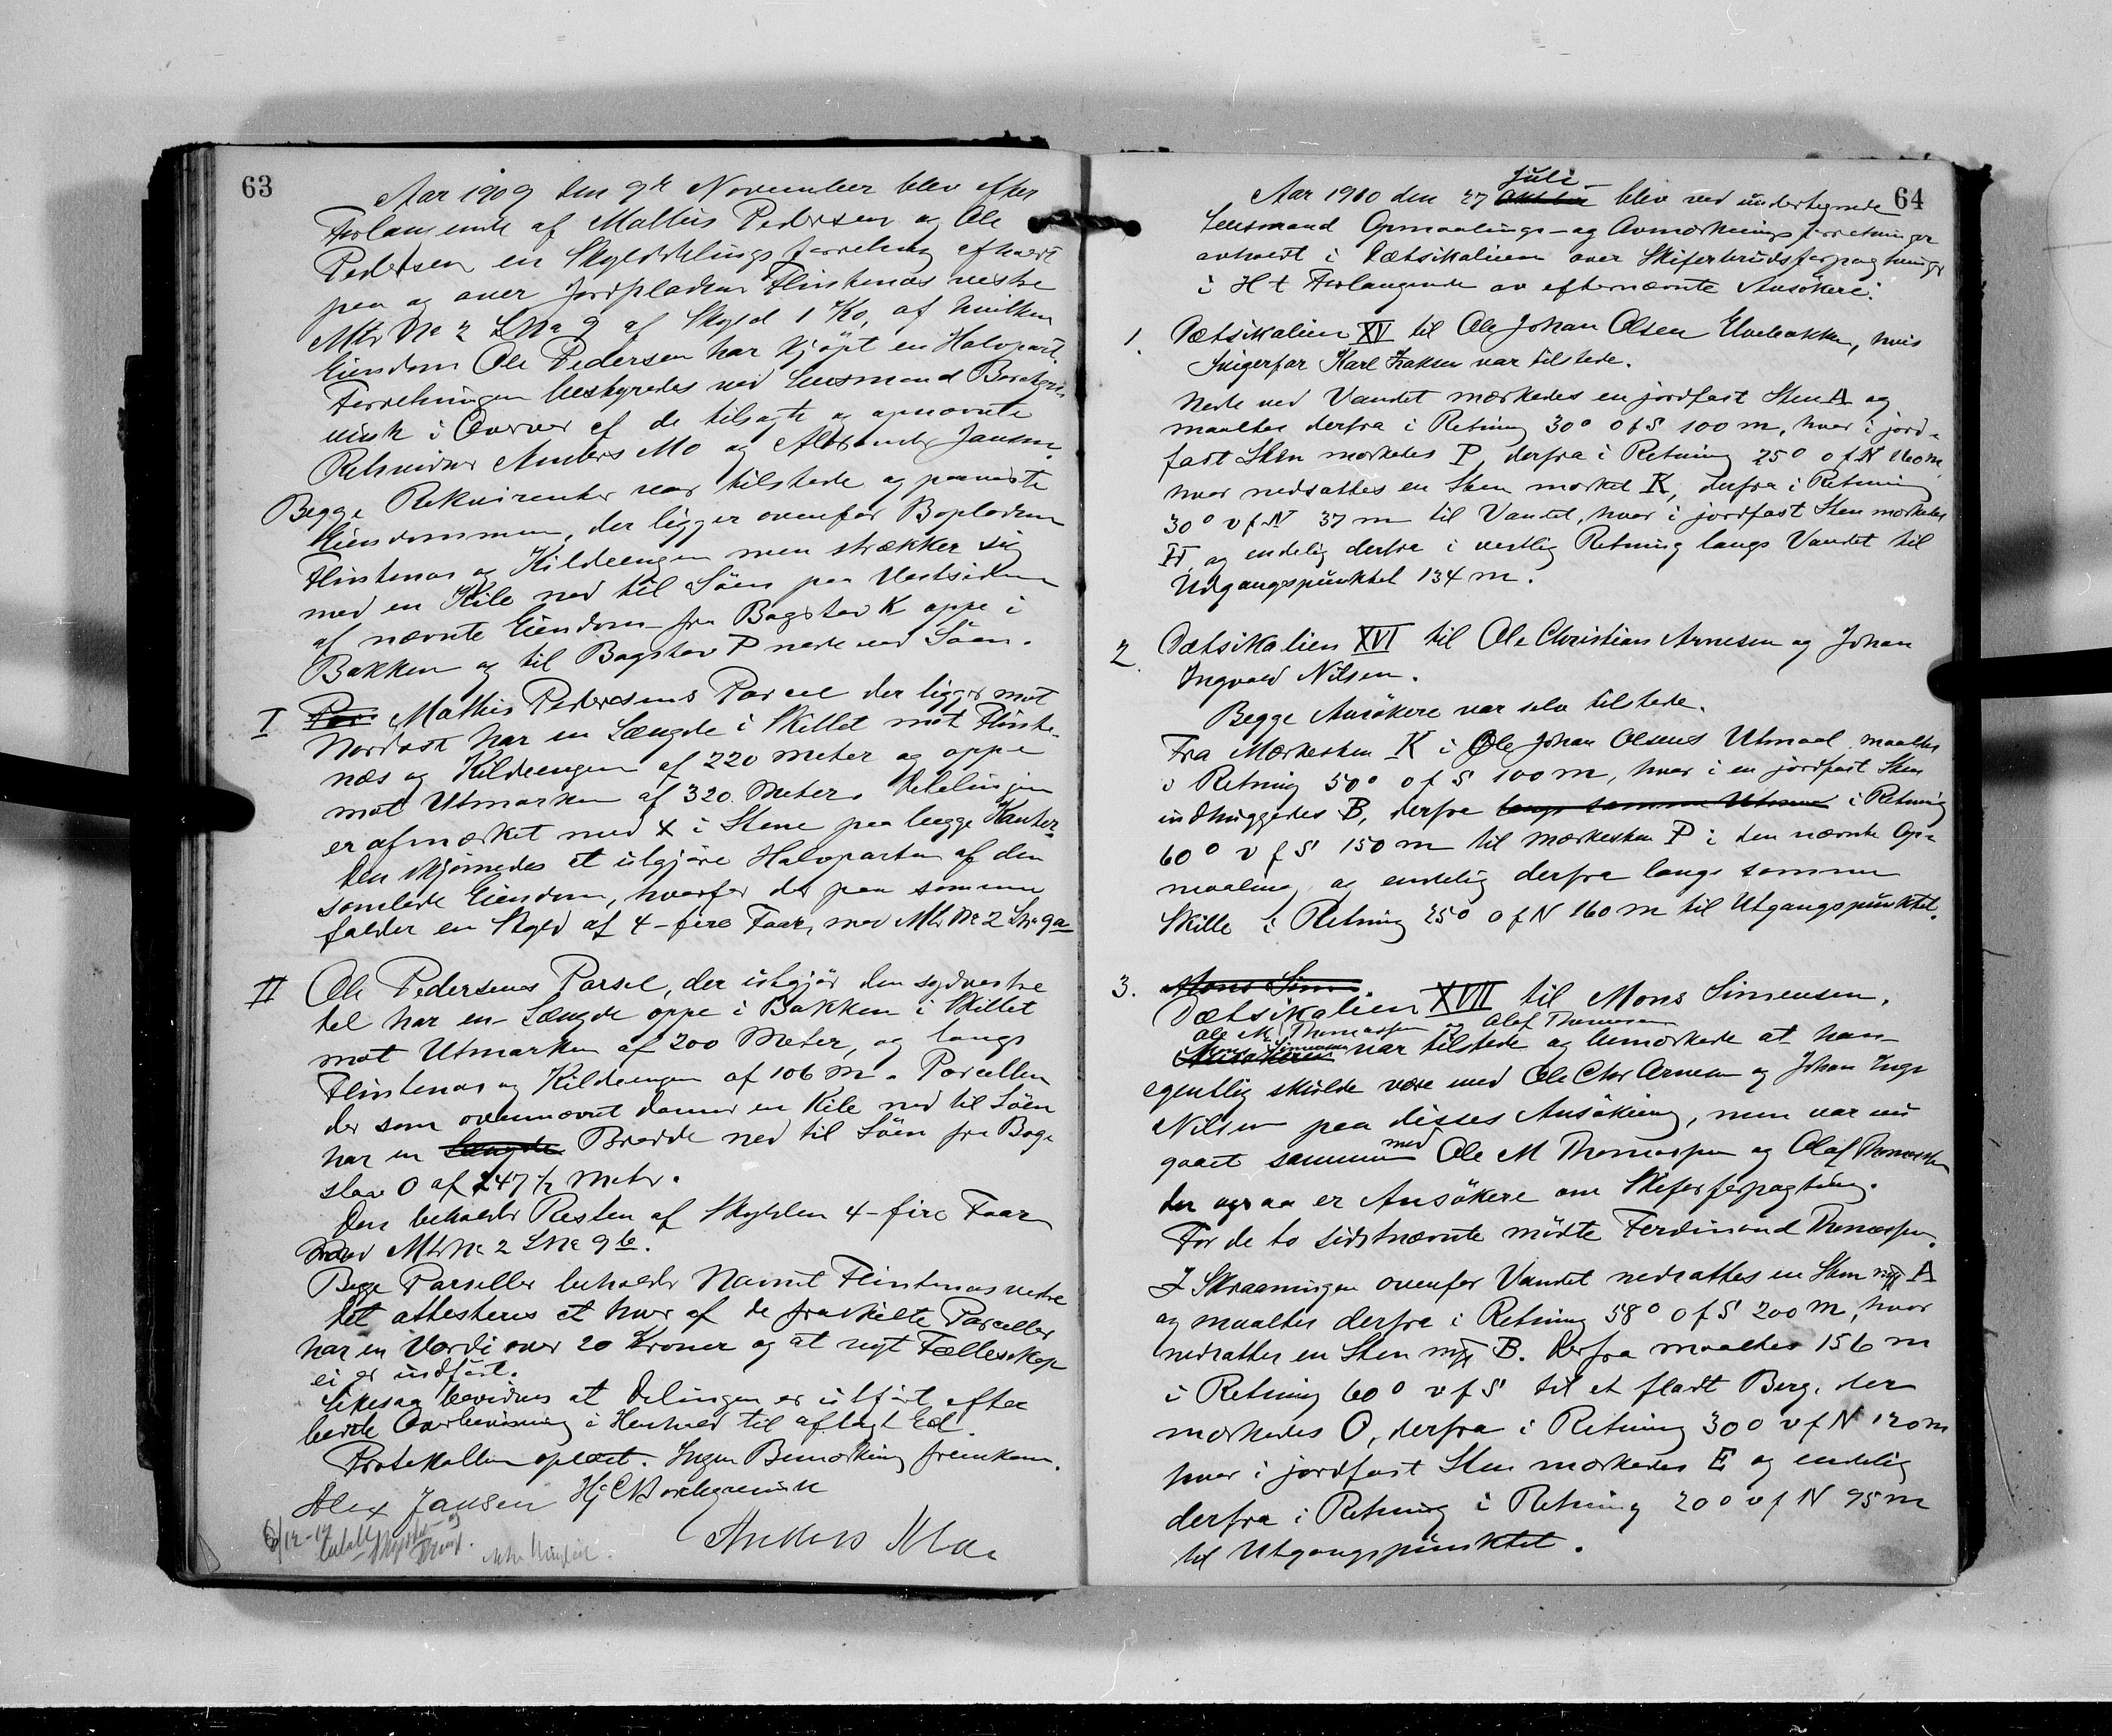 63
Aar 1909 den 9de November blev efter
Forlangende af Mathis Pedersen og Ole
Pedersen en Skylddelingsforretning afholdt
paa og over Jordpladsen Flintenæs vestre
Mtr No 2 LNo 9 af Skyld 1 Ko, af hvilken
Eiendom Ole Pedersen har kjøpt en Halvpart.
Forretningen bestyredes ved Lensmand Borchgre
vink i Overvær af de tilsagte og opnævnte
Retsvidner Anders Mo og Alexander Jansen.
Begge Rekvirenter var tilstede og paaviste
Eiendommen, der ligger ovenfor Bopladsen
Flintenæs og Kildeengen men strækker sig
med en Kile ned til Søen paa Vestsiden
af nævnte Eiendom – fra Bogstav K oppe i
Bakken og til Bogstav P nede ved Søen.
I Par Mathis Pedersens Parcel der ligger mot
Nordost har en Længde i Skillet mot Flinte-
næs og Kildeengen af 220 meter og oppe
mot Utmarken af 320 Meter. Delelinjen
er afmærket med X i Stene paa begge Kanter.
Den skjønnedes at utgjøre Halvparten af den
samlede Eiendom, hvorfor der paa samme
falder en Skyld af 4–fire Faar, med Mtr No 2 LNo 9a
II Ole Pedersens Parsel, der utgjør den sydvestre
del har en Længde oppe i Bakken i Skillet
mot Utmarken af 200 Meter, og langs
Flintenæs og Kildeengen af 106 m. Parcellen
der som ovennævnt danner en Kile ned til Søen
har en Længde Bredde ned til Søen fra Bog-
stav O af 247 1/2 Meter.
Den beholder Resten af Skylden 4–fire Faar
med Mtr No 2 LNo 9b.
Begge Parseller beholder Navnet Flintenæs vestre
Det attesteres at hver af de fraskilte Parceller
har en Værdi over 20 Kroner og at nyt Fællesskap
ei er indført.
Likesaa bevidnes at Delingen er utført efter
bedste Overbevisning i Henhold til aflagt Ed.
Protokollen oplæst. Ingen Bemærkning fremkom.
Alex Jansen Hj C Borchgrevink
Anders Mo
6/12-17
64
Juli
Aar 1910 den 27 Oktober blev ved undertegnede
Lensmand Opmaalings- og Avmerkningsforretninger
avholdt i Pætsikalien over Skiferbrudsforpagtninger
i H t Forlangende av efternævnte Ansøkere:
1. Pætsikalien XV til Ole Johan Olsen Elvebakken, hvis
Svigerfar Karl Isaksen var tilstede.
Nede ved Vandet mærkedes en jordfast Sten A og
maaltes derfra i Retning 30° O f S 100 m, hvor i jord-
fast Sten mærkedes P, derfra i Retning 25° O f N 160 m
hvor nedsattes en Sten mærket K, derfra i Retning
30° v f N 37 m til Vandet, hvor i jordfast Sten mærkedes
H og endelig derfra i vestlig Retning langs Vandet til
Udgangspunktet 134 m.
2. Pætsikalien XVI til Ole Christian Arnesen og Johan
Ingvald Nilsen.
Begge Ansøkere var selv tilstede.
Fra Merkesten K i Ole Johan Olsens Utmaal maaltes
i Retning 50° O f S 100 m, hvor i en jordfast Sten
indhuggedes B, derfra langs samme i Retning
60° v f S 150 m til Mærkesten P i den nævnte Op-
maaling og endelig derfra langs samme
Skille i Retning 25° O f N 160 m til Utgangspunktet.
3. Mons Sim
Pætsikalien XVII til Mons Simensen,
Ole M Thomassen og Olaf Thomassen
Mons Simensen
Ansøkeren var tilstede og bemerkede at han
egentlig skulde være med Ole Chr Arnesen og Johan Ingv
Nilsen paa disses Ansøkning, men var nu
gaaet sammen med Ole M Thomassen og Olaf Thomassen
der ogsaa er Ansøkere om Skiferforpagtning.
For de to sidstnævnte mødte Ferdinand Thomassen.
I Skraaningen ovenfor Vandet nedsattes en Sten mrk A
og maaltes derfra i Retning 58° O f S 200 m, hvor
nedsattes en Sten mrk B. Derfra maaltes 156 m
i Retning 60° v f S til et fladt Berg, der
merkedes O, derfra i Retning 30° v f N 120 m
hvor i jordfast Sten merkedes E og endelig
derfra i Retning i Retning 20° v f N 95 m
til Utgangspunktet.